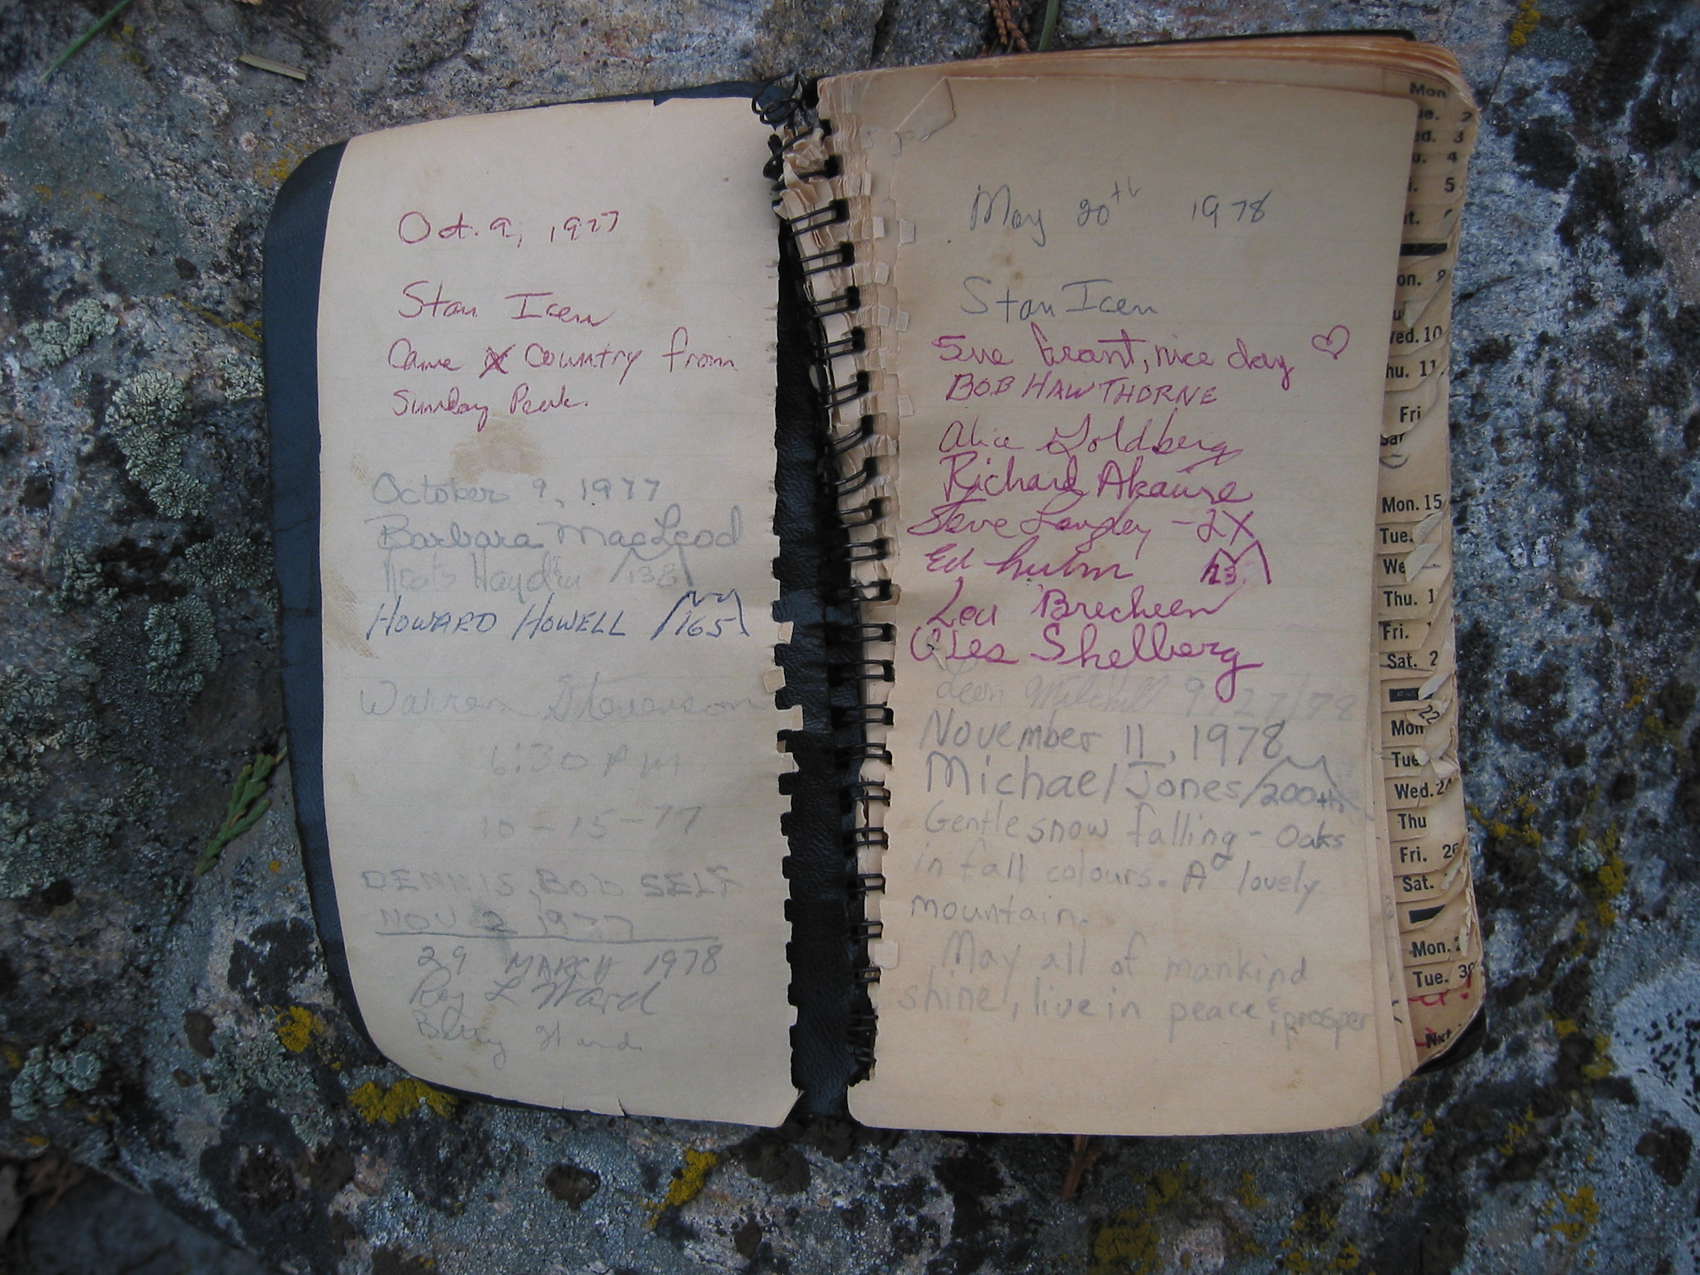 Oct. 9, 1977
Stan Icen
Came X Country from
Sunday Peak.
October 9, 1977
Barbara MacLeod
Hayden 138
HOWARD HOWELL 165
Warren Stevenson
6:30 PM
10-15-77
DENNIS, BOB SELF
NOV 2 1977
29 MARCH 1978
Roy L Ward
May 20th 1978
Stan Icen
Sue Grant, nice day ♡
BOB HAWTHORNE
Alice Goldberg
Richard Akawie
Langley - 2X
Ed 123
Lou Brecheen
Wes Shelberg
Mitchell 9/27/78
November 11, 1978
Michael Jones 200th
Gentle snow falling - Oaks
in fall colours. A lovely
mountain.
May all of mankind
shine, live in peace & prosper
Mon
2
3
4
5
9
Wed. 10
Thu. 11
Fri
Sat
Mon. 15
Tue.
We
Thu. 1
Fri.
Sat. 2
22
Mon
Tue
Wed. 24
Thu
Fri. 26
Sat.
Mon. 2
Tue. 30